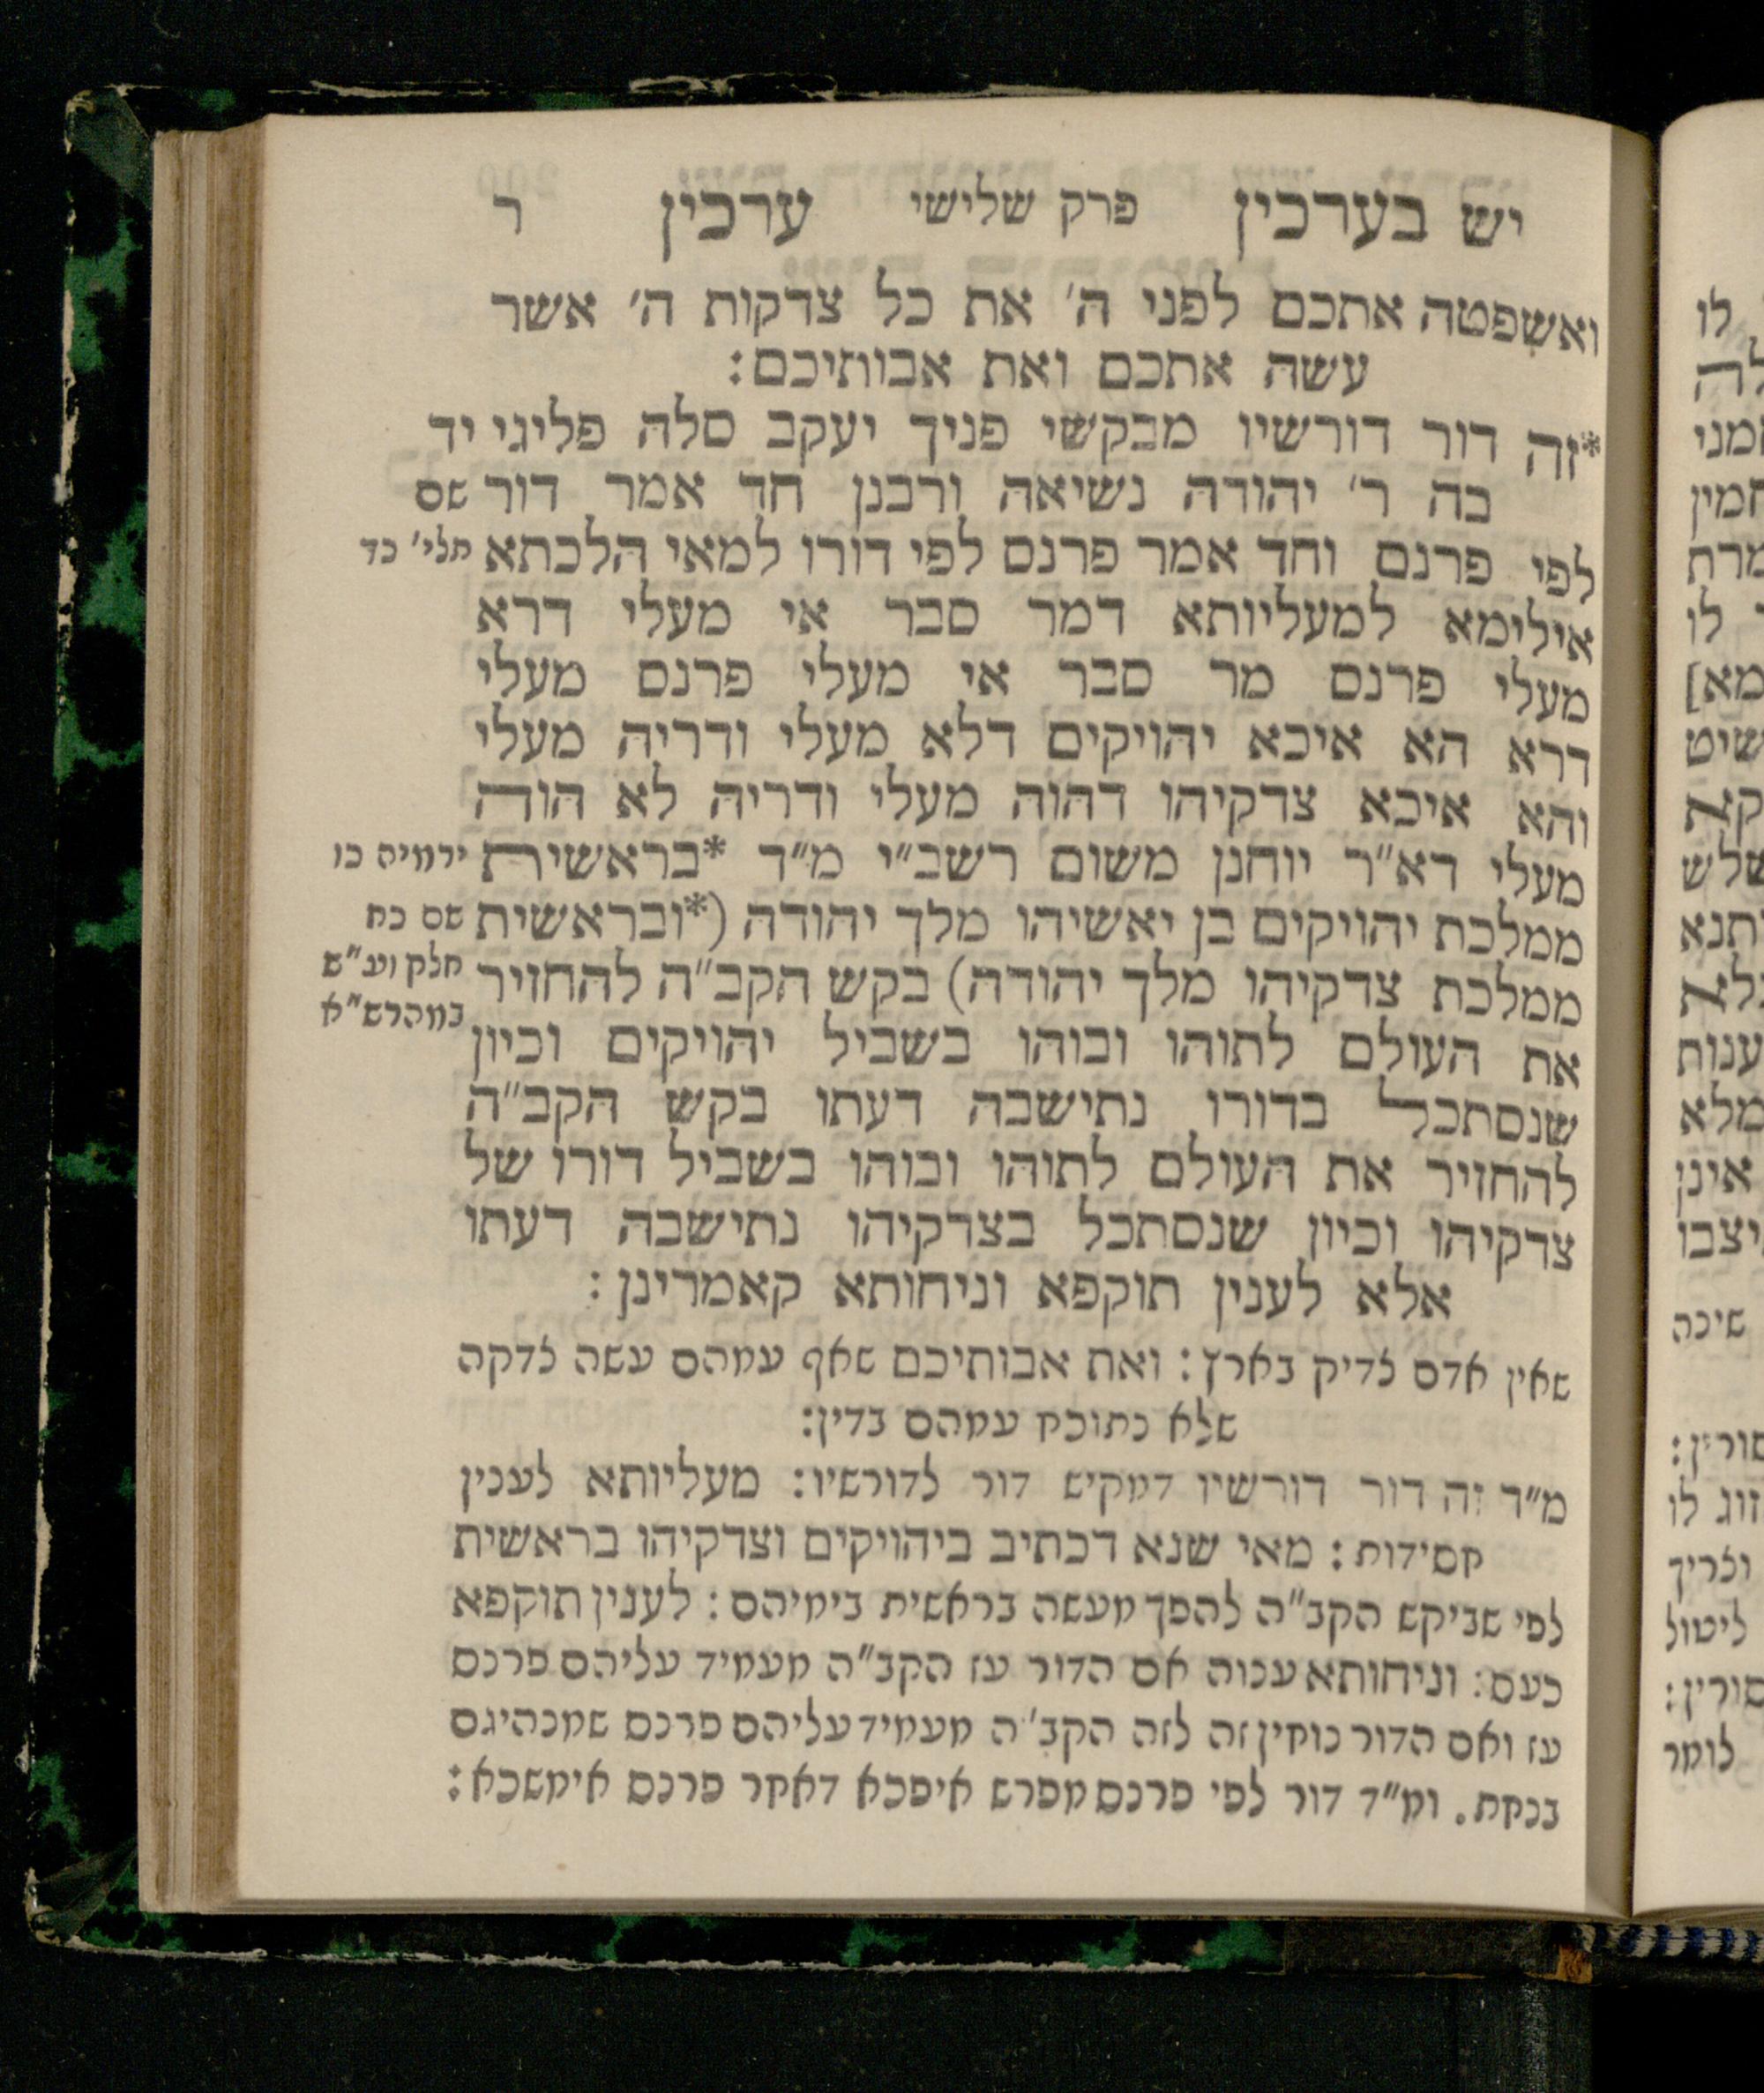 יש בערכין פרק שלישי ערכין ר
ואשפטה אתכם לפני ה' את כל צדקות ה' אשר
עשה אתכם ואת אבותיכם:
*זה דור דורשיו מבקשי פניך יעקב סלה פליגי יד
בה ר' יהודה נשיאה ורבנן חד אמר דור שם
לפי פרנס וחד אמר פרנס לפי דורו למאי הלכתא תלי' כד
אילימא למעליותא דמר סבר אי מעלי דרא
מעלי פרנס מר סבר אי מעלי פרנס מעלי
דרא הא איכא יהויקים דלא מעלי ודריה מעלי
והא איכא צדקיהו דהוה מעלי ודריה לא הוה
מעלי דא"ר יוחנן משום רשב"י מ"ד *בראשית ירמיה כו
ממלכת יהויקים בן יאשיהו מלך יהודה (*ובראשית שם כח
ממלכת צדקיהו מלך יהודה) בקש הקב"ה להחזיר חלק וע"ש
במהרש"א
את העולם לתוהו ובוהו בשביל יהויקים וכיון
שנסתכל בדורו נתישבה דעתו בקש הקב"ה
להחזיר את העולם לתוהו ובוהו בשביל דורו של
צדקיהו וכיון שנסתכל בצדקיהו נתישבה דעתו
אלא לענין תוקפא וניחותא קאמרינן:
שאין אדם צדיק בארץ: ואת אבותיכם שאף עמהם עשה צדקה
שלא נתוכח עמהם בדין:
מ"ד זה דור דורשיו דמקיש דור לדורשיו: מעליותא לענין
חסידות: מאי שנא דכתיב ביהויקים וצדקיהו בראשית
לפי שביקש הקב"ה להפך מעשה בראשית בימיהם: לענין תוקפא
כעס: וניחותא ענוה אם הדור עז הקב"ה מעמיד עליהם פרנס
עז ואם הדור נוחין זה לזה הקב"ה מעמיד עליהם פרנס שמנהיגם
בנחת. ומ"ד דור לפי פרנס מפרש איפכא דאקר פרנס אימשכא: